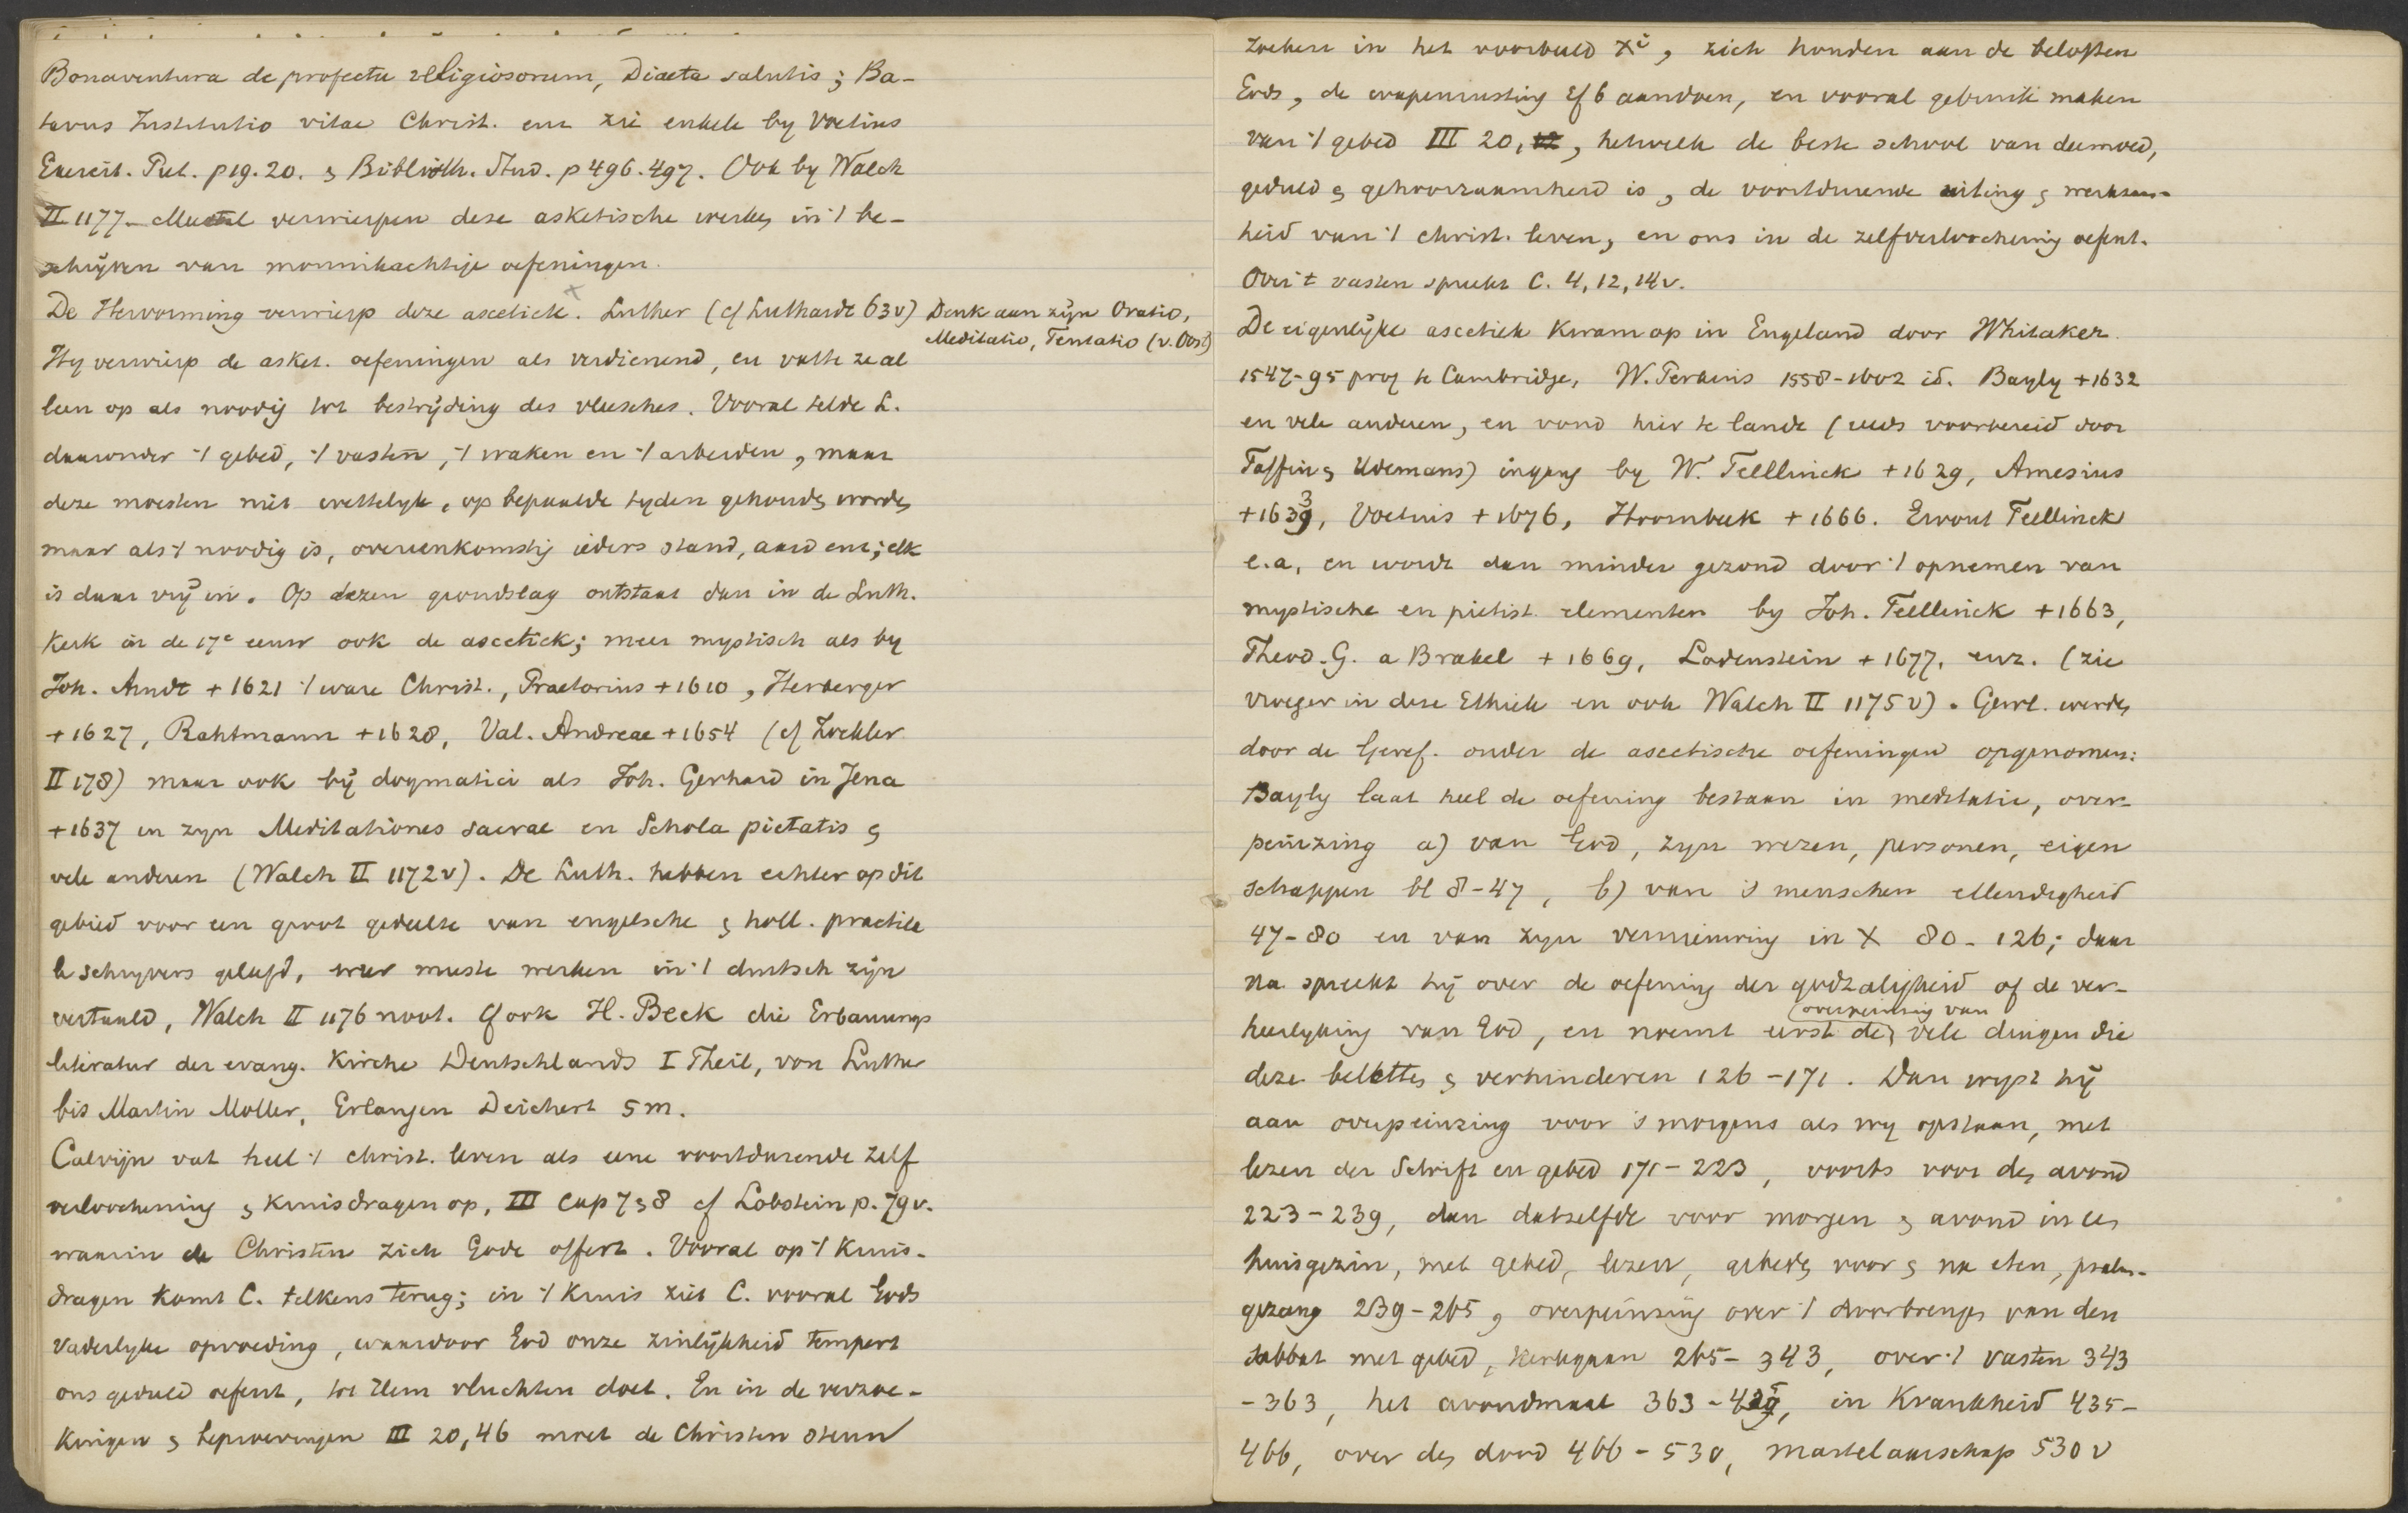 Bonaventura de profectu religiosorum, Diaeta salutis; Ba-
tavus Institutio vitae Christ. enz zie enkele by Voetius
Exercit. Piet. p 19. 20. & Biblioth. Stud. p 496. 497. Ook by Walch
II 1177. Meestal verwierpen deze asketische werken in 't be-
schrijven van monnikachtige oefeningen.
De Hervorming verwierp deze ascetiek. × Luther (cf Luthardt 63v) Denk aan zijn Oratio,
Meditatio, Tentatio (v. Oost)
Hy verwierp de asket. oefeningen als verdienend, en vatte ze al
leen op als noodig tot bestrijding des vleesches. Vooral telde L.
daaronder 't gebed, 't vasten, 't waken en 't arbeiden, maar
deze moesten niet wettelyk, op bepaalde tyden gehouden worden
maar als 't noodig is, overeenkomstig ieders stand, aard enz; elk
is daar vrij in. Op dezen grondslag ontstaat dan in de Luth.
Kerk in de 17e eeuw ook de ascetiek; meer mystisch als by
Joh. Arndt + 1621 't ware Christ., Praetorius + 1610, Herberger
+ 1627, Rahtmann + 1628, Val. Andreae + 1654 (cf Zöckler
II 178) maar ook bij dogmatici als Joh. Gerhard in Jena
+ 1637 in zyn Meditationes sacrae en Schola pietatis &
vele anderen (Walch II 1172v). De Luth. hebben echter op dit
gebied voor een groot gedeelte van engelsche & holl. practica
le schryvers geleefd, wier meeste werken in 't duitsch zijn
vertaald, Walch II 1176 noot. Cf ook H. Beck die Erbauungs
literatur der evang. Kirche Deutschlands I Theil, von Luther
bis Martin Moller, Erlangen Deichert 5 m.
Calvijn vat heel 't christ. leven als eene voortdurende zelf
verloochening & kruisdragen op, III cap 7 & 8 cf Lobstein p. 79v.
waarin de Christen zich Gode offert. Vooral op 't kruis-
dragen komt C. telkens terug; in 't kruis ziet C. vooral Gods
vaderlyke opvoeding, waardoor God onze zinlijkheid tempert
ons geduld oefent, tot Hem vluchten doet. En in de verzoe-
kingen & beproevingen III 20,46 moet de Christen steun
zoeken in het voorbeeld Xi, zich houden aan de beloften
Gods, de wapenrusting Ef 6 aandoen, en vooral gebruik maken
van 't gebed III 20, hetwelk de beste school van deemoed,
geduld & gehoorzaamheid is, de voortdurende uiting & werkzaam-
heid van 't christ. leven, en ons in de zelfverloochening oefent.
Over 't vasten spreekt C. 4, 12, 14v.
De eigenlijke ascetiek kwam op in Engeland door Whitaker
1547-95 prof te Cambridge, W. Perkins 1558-1602 id. Bayly + 1632
en vele anderen, en vond hier te lande (reeds voorbereid door
Taffin & Udemans) ingang by W. Teellinck + 1629, Amesius
+ 1633, Voetius + 1676, Hoornbeek + 1666. Ewout Teellinck
e.a. en wordt dan minder gezond door 't opnemen van
mystische en pietist. elementen by Joh. Teellinck + 1663,
Theod. G. a Brakel + 1669, Lodenstein + 1677, enz. (zie
vroeger in deze Ethiek en ook Walch II 1175 v). Gewl. werden
door de Geref. onder de ascetische oefeningen opgenomen:
Bayly laat heel de oefening bestaan in meditatie, over-
peinzing a) van God, zyn wezen, personen, eigen
schappen bl 8-47, b) van 's menschen ellendigheid
47-80 en van zyn vernieuwing in X 80-126; daar
na spreekt hij over de oefening der godzaligheid of de ver-
heerlyking van God, en noemt eerst de (overpeinzing van) vele dingen die
deze beletten & verhinderen 126-171. Dan wyst hij
aan overpeinzing voor 's morgens als wy opstaan, met
lezen der Schrift en gebed 171-223, voorts voor den avond
223-239, dan datzelfde voor morgen & avond in het
huisgezin, met gebed, lezen, gebeden voor & na eten, psalm-
gezang 239-265, overpeinzing over 't doorbrengen van den
sabbat met gebed, kerkgaan 265-343, over 't vasten 343
-363, het avondmaal 363-435, in krankheid 435-
466, over den dood 466-530, martelaarschap 530 v